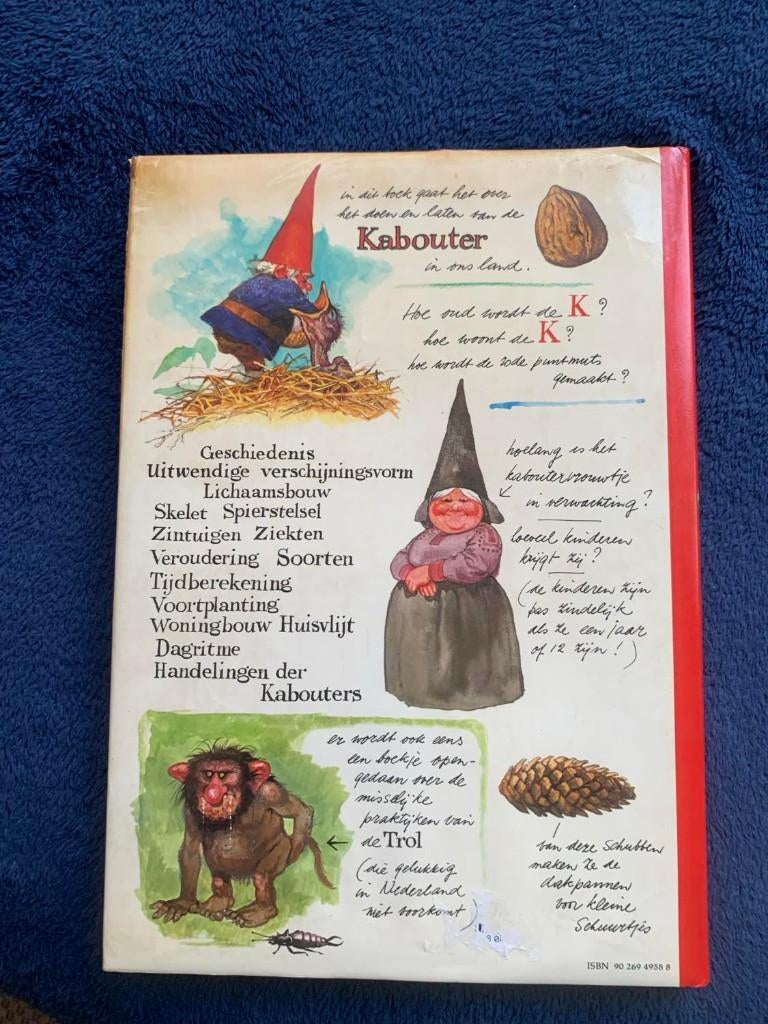 in dit boek gaat het over
het doen en laten van de
Kabouter
in ons land.
Hoe oud wordt de K?
hoe woont de K?
hoe wordt de rode puntmuts
gemaakt?
Geschiedenis
Uitwendige verschijningsvorm
Lichaamsbouw
Skelet Spierstelsel
Zintuigen Ziekten
Veroudering Soorten
Tijdberekening
Voortplanting
Woningbouw Huisvlijt
Dagritme
Handelingen der
Kabouters
hoelang is het
kaboutervrouwtje
in verwachting?
hoeveel kinderen
krijgt zij?
(de kinderen zijn
pas zindelijk
als ze een jaar
of 12 zijn!)
er wordt ook eens
een boekje open-
gedaan over de
misselijke
praktijken van
de Trol
(die gelukkig
in Nederland
niet voorkomt)
van deze schubben
maken ze de
dakpannen
voor kleine
Schuurtjes
ISBN 90 269 4958 8